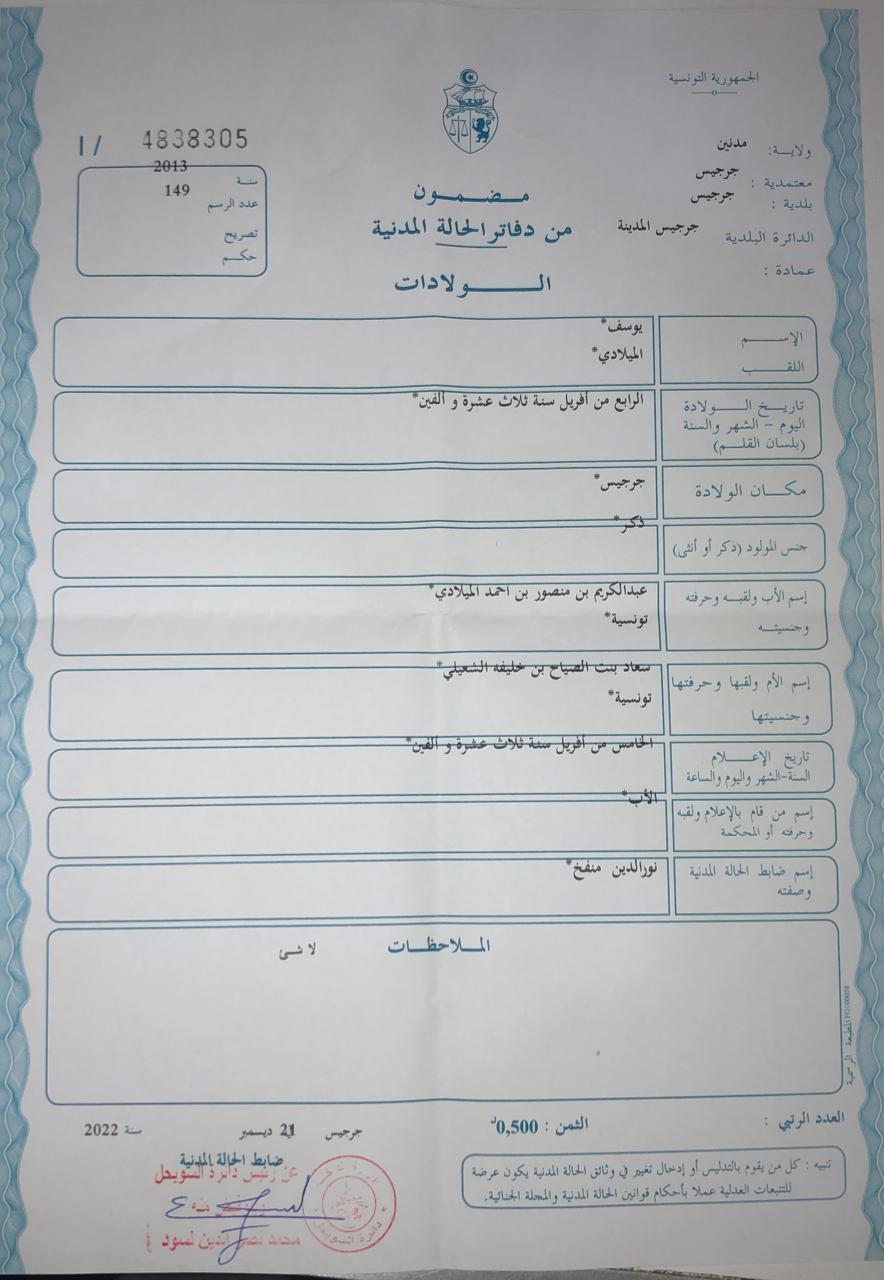 الجمهورية التونسية
ولاية: مدنين
معتمدية : جرجيس
بلدية : جرجيس
الدائرة البلدية جرجيس المدينة
عمادة :
I / 4838305
سنة 2013
عدد الرسم 149
تصريح
حكم
مضمون
من دفاتر الحالة المدنية
الولادات
الإسم يوسف*
اللقب الميلادي*
تاريخ الولادة الرابع من أفريل سنة ثلاث عشرة و ألفين*
اليوم – الشهر والسنة
(بلسان القلم)
مكان الولادة جرجيس*
جنس المولود (ذكر أو أنثى) ذكر*
إسم الأب ولقبه وحرفته عبدالكريم بن منصور بن احمد الميلادي*
وجنسيته تونسية*
إسم الأم ولقبها وحرفتها سعاد بنت الصياح بن خليفه الشعيلي*
وجنسيتها تونسية*
تاريخ الإعلام الخامس من أفريل سنة ثلاث عشرة و ألفين*
السنة-الشهر واليوم والساعة
إسم من قام بالإعلام ولقبه الأب*
وحرفته أو المحكمة
إسم ضابط الحالة المدنية نورالدين منفخ*
وصفته
الملاحظات لا شئ
المطبعة الرسمية
العدد الرتبي :
الثمن : 0,500د
جرجيس في 21 ديسمبر سنة 2022
ضابط الحالة المدنية
عن رئيس دائرة السويحل
محمد نصر الدين لسود
دائرة السويحل
تنبيه : كل من يقوم بالتدليس أو إدخال تغيير في وثائق الحالة المدنية يكون عرضة
للتتبعات العدلية عملا بأحكام قوانين الحالة المدنية والمجلة الجنائية.